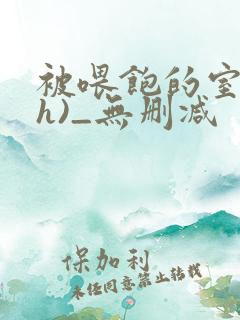 被喂饱的室
h)_无删减
保加利
未经同意禁止转载